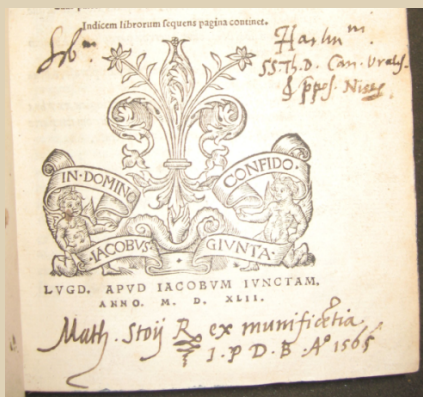 Indicem librorum sequens pagina continet.
SS. Th. D. Can. Vratisl.
IN·DOMINO
CONFIDO·
·IACOBVS·
GIVNTA·
LVGD. APVD IACOBVM IVNCTAM.
ANNO. M. D. XLII.
Math. Stoij R ex munificẽtia
I. P D. B. Aº 1565